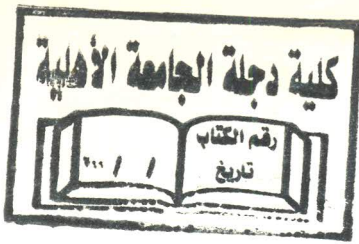 كلية دجلة الجامعة الأهلية
رقم الكتاب
تاريخ
/ / ٢٠١